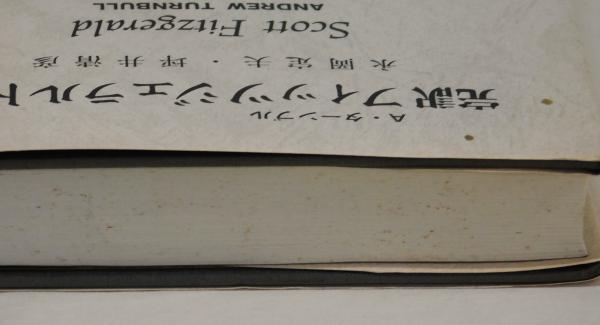 A・ターンブル
完訳フィッツジェラルド
永岡定夫・坪井清彦
Scott Fitzgerald
ANDREW TURNBULL